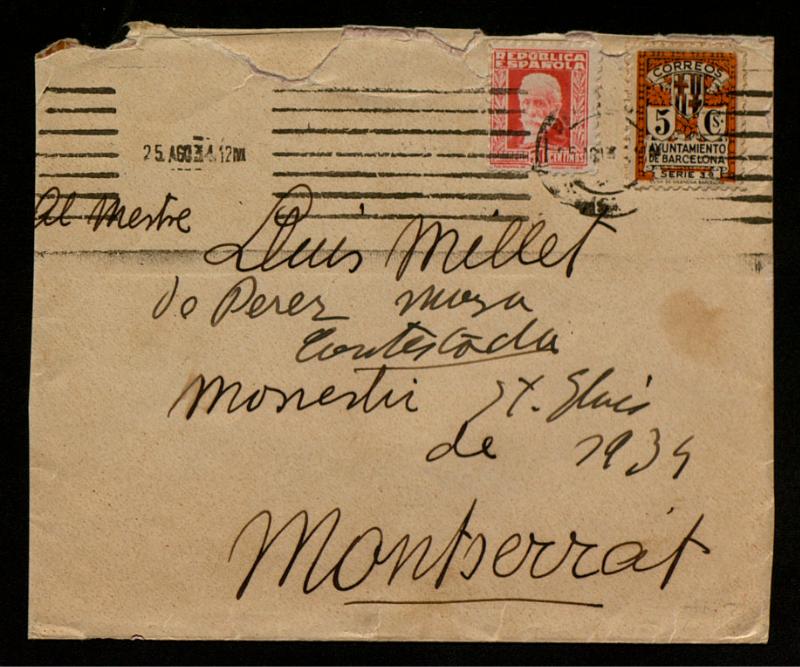 REPÚBLICA
ESPAÑOLA
CENTIMOS
CORREOS
5 Cs.
AYUNTAMIENTO
DE BARCELONA
SERIE 3ª
25. AGO 34. 12M
Al Mestre
Lluis Millet
de Perez Moya
Contestada
Monestir St. Lluis
de 1934
Montserrat